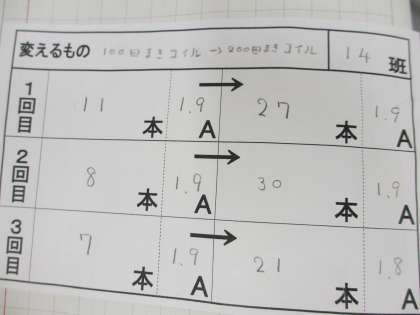 変えるもの 100回まきコイル→200回まきコイル 14 班
1回目 11 本 1.9 A → 27 本 1.9 A
2回目 8 本 1.9 A → 30 本 1.9 A
3回目 7 本 1.9 A → 21 本 1.8 A